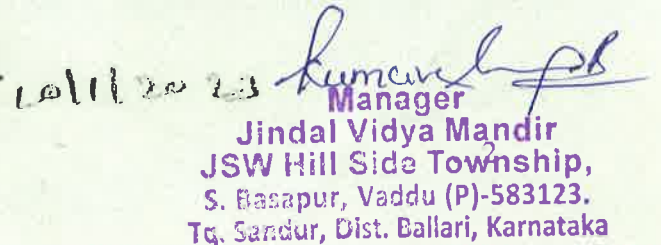 10/11/2023
Manager
Jindal Vidya Mandir
JSW Hill Side Township,
S. Basapur, Vaddu (P)-583123.
Tq. Sandur, Dist. Ballari, Karnataka